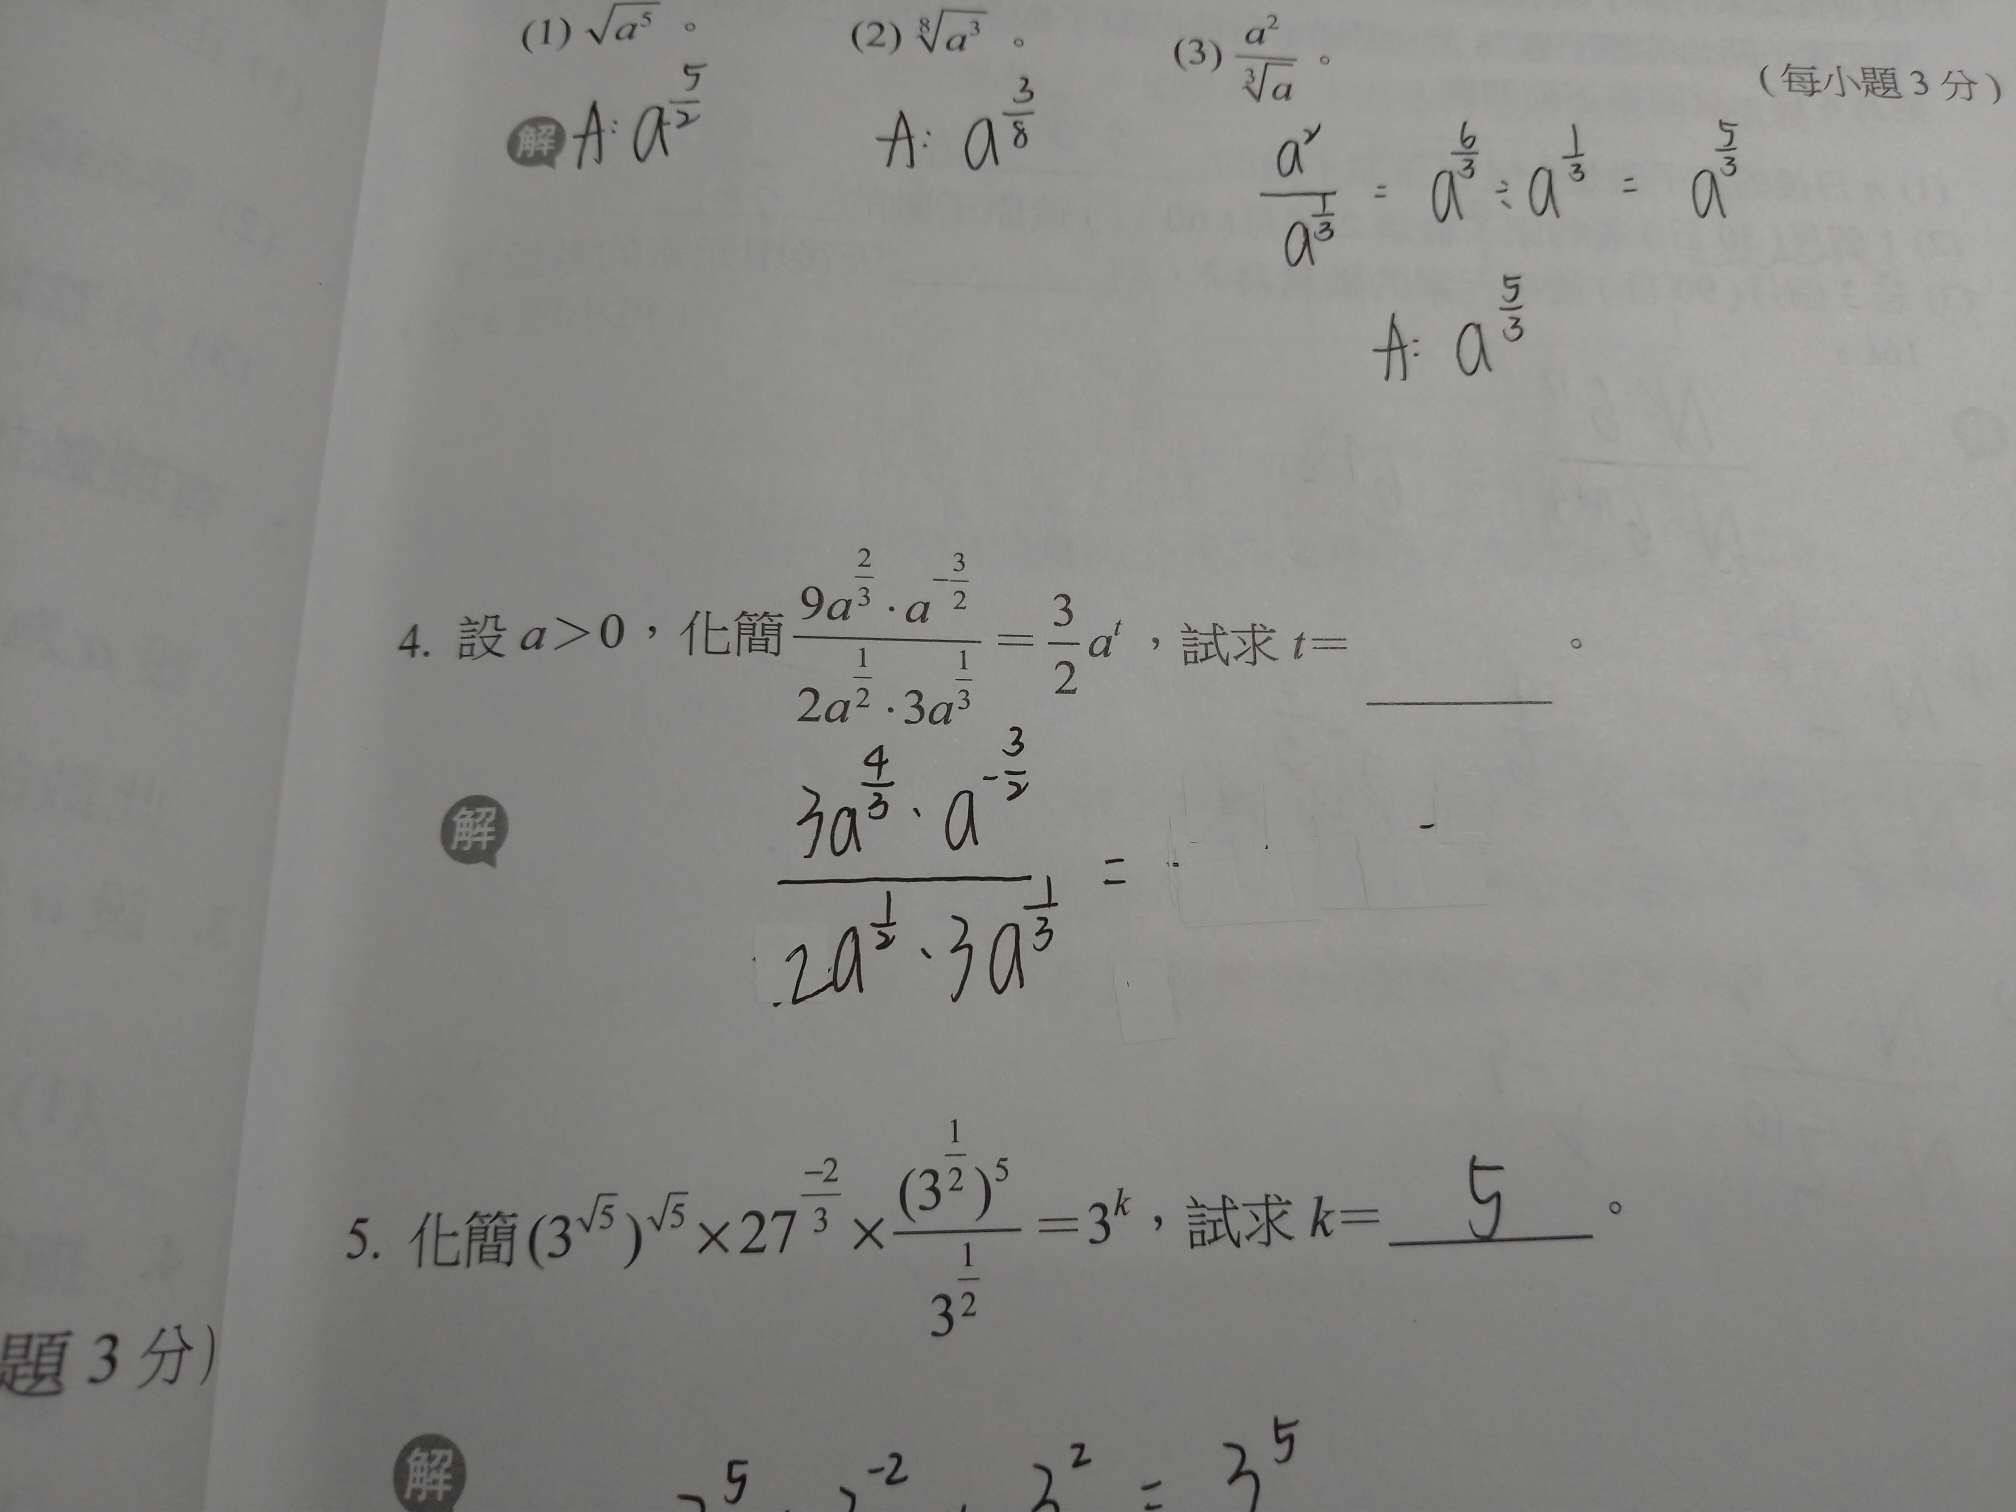 (1) √a⁵。 (2) ⁸√a³。 (3) a²/³√a。 (每小題3分)
解 A: a^(5/2) A: a^(3/8) a²/a^(1/3) = a^(6/3) ÷ a^(1/3) = a^(5/3)
A: a^(5/3)
4. 設a>0，化簡 (9a^(2/3)·a^(-3/2))/(2a^(1/2)·3a^(1/3)) = (3/2)a^t，試求t=______。
解 (3a^(4/3)·a^(-3/2))/(2a^(1/2)·3a^(1/3)) =
5. 化簡(3^√5)^√5×27^(-2/3)×(3^(1/2))⁵/3^(1/2)=3^k，試求k= 5 。
題3分)
解 3⁵·3⁻²·3² = 3⁵